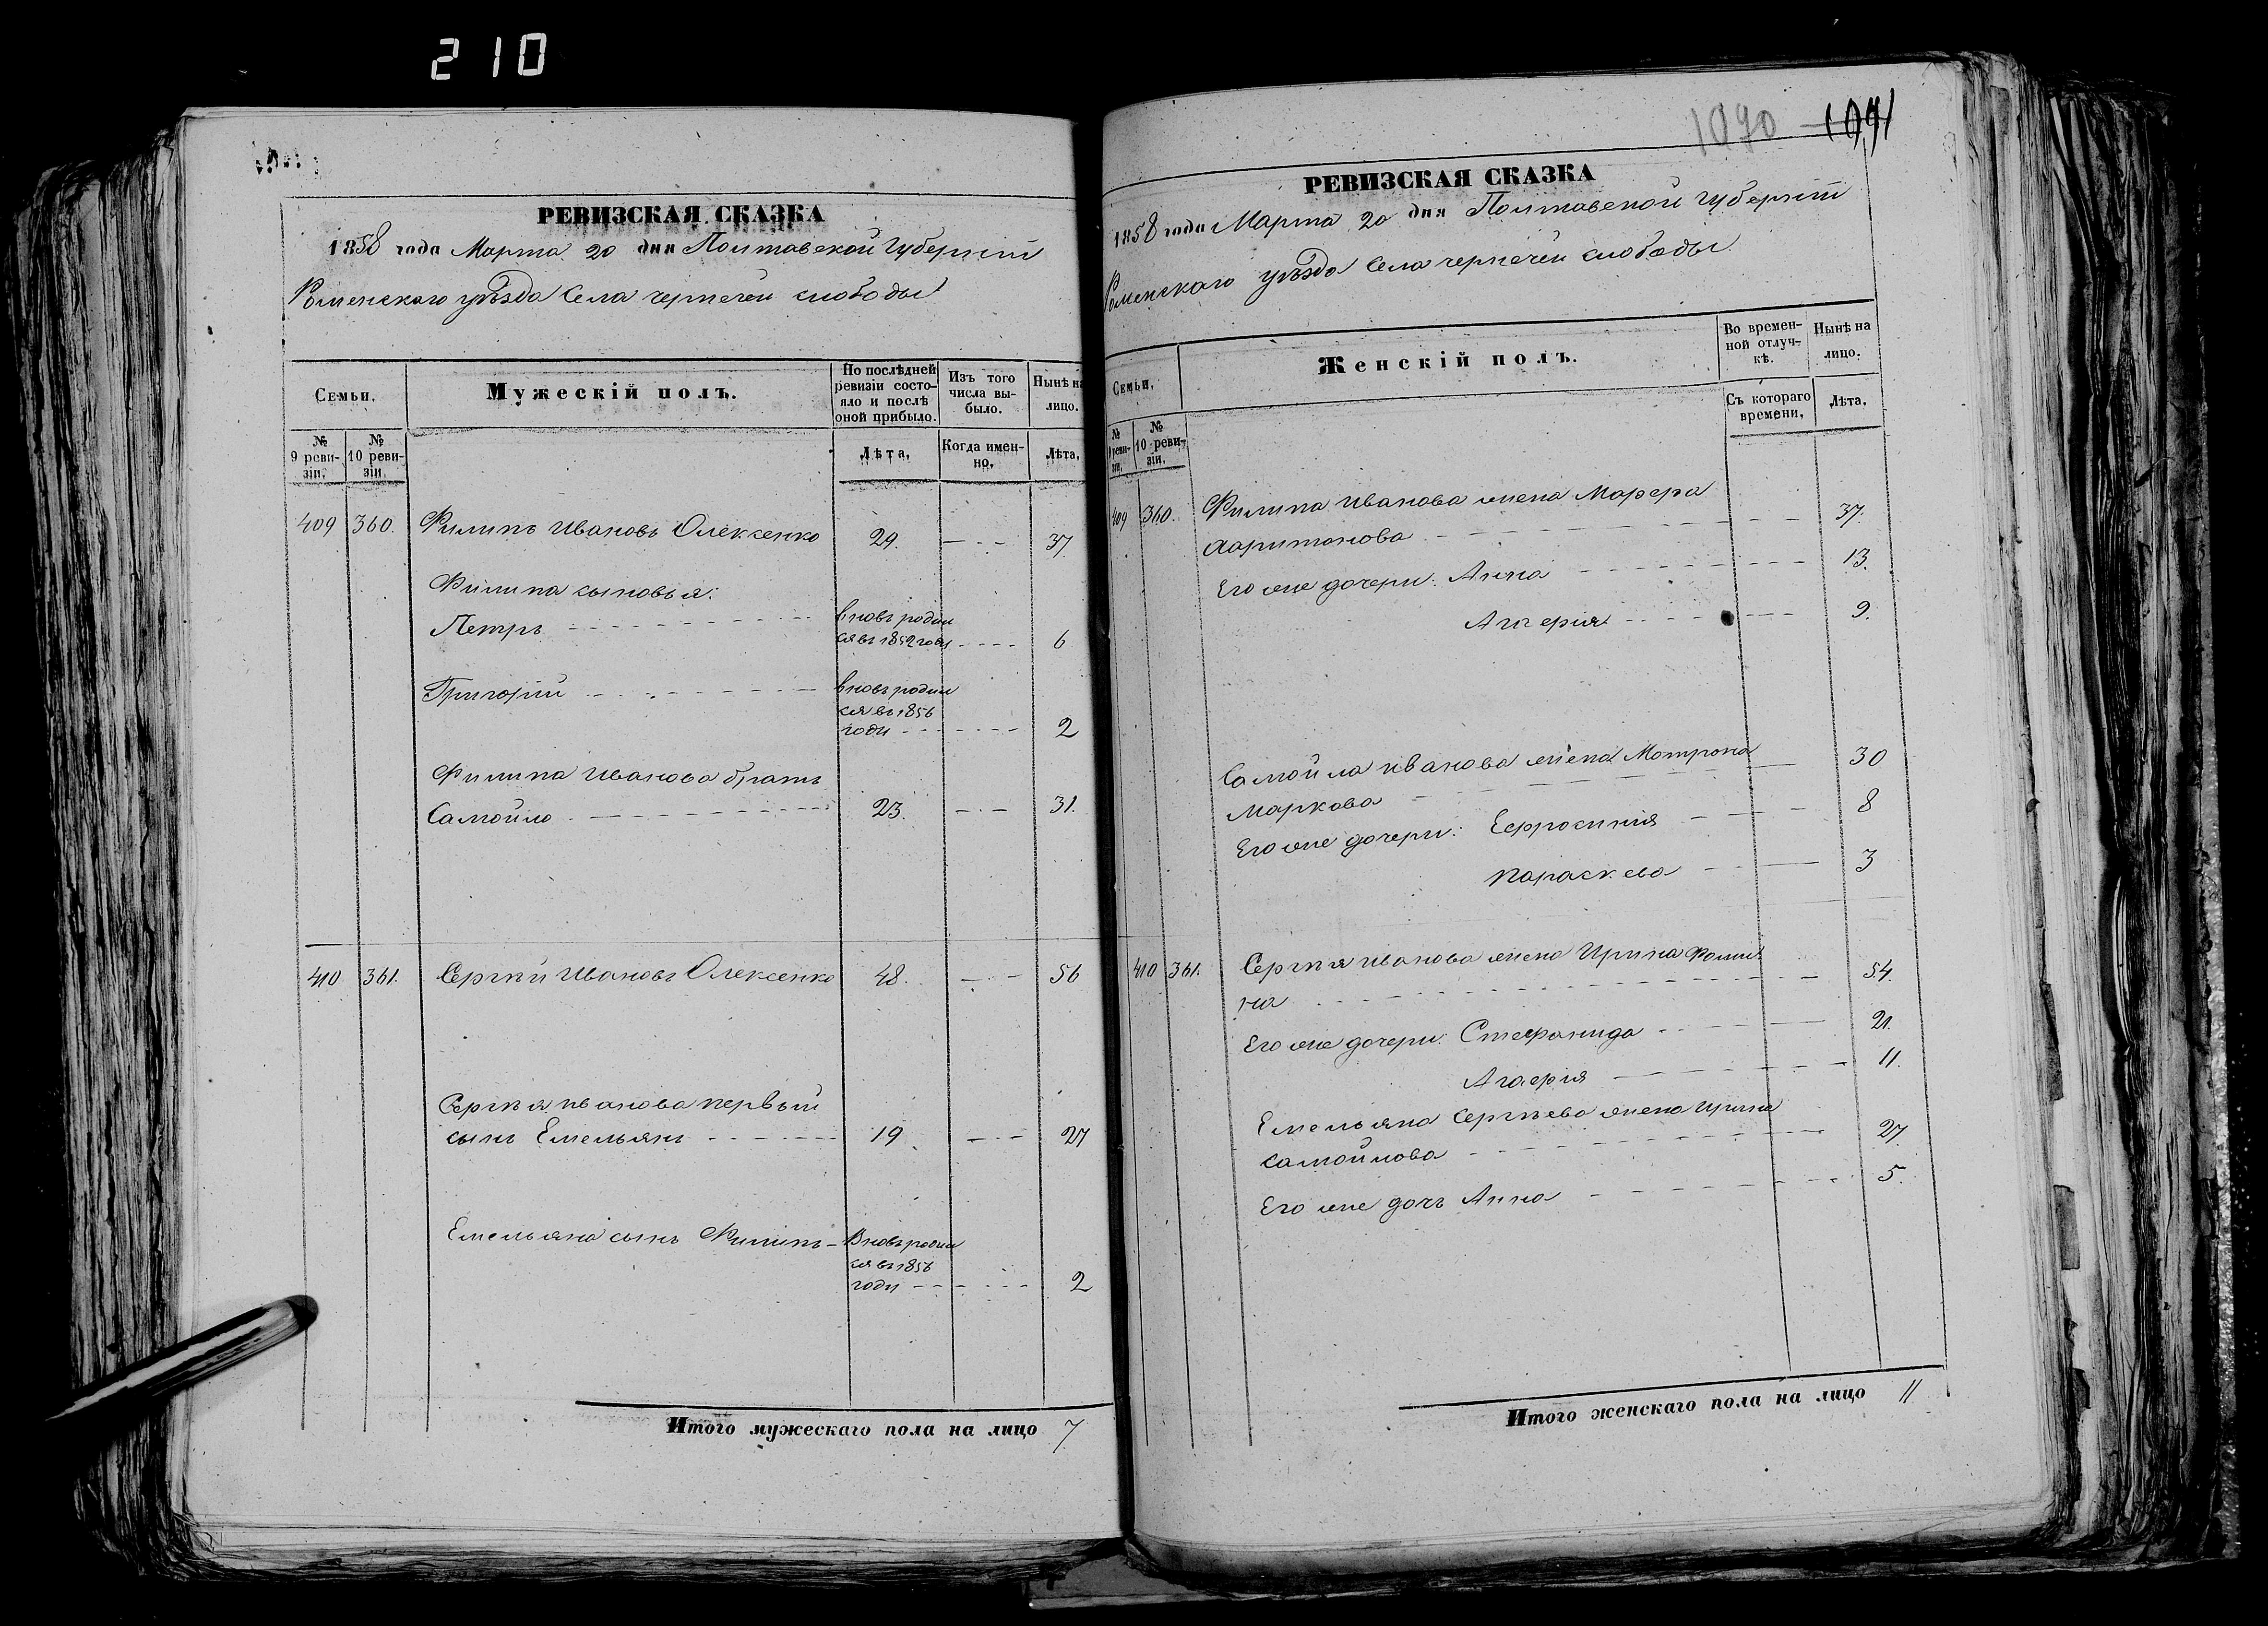 210
РЕВИЗСКАЯ СКАЗКА
1858 года Марта 20 дня Полтавской Губерніи
Роменскаго уѣзда села чернечей слободы
Семьи.
Мужескій полъ.
По послѣдней ревизіи состояло и послѣ оной прибыло.
Изъ того числа выбыло.
Нынѣ на лицо.
№ 9 ревизіи.
№ 10 ревизіи.
Лѣта.
Когда именно.
Лѣта.
409 360. Филипъ Ивановъ Олексенко 29. 37.
Филипа сыновья:
Петръ вновь родился въ 1852 году 6
Григорій вновь родился въ 1856 году 2
Филипа Иванова братъ
Самойло 23. 31.
410 361. Сергѣй Ивановъ Олексенко 48. 56
Сергѣя Иванова первый
сынъ Емельянъ 19. 27
Емельяна сынъ Филипъ Вновь родился въ 1856 году 2
Итого мужескаго пола на лицо 7
1090 1091
РЕВИЗСКАЯ СКАЗКА
1858 года Марта 20 дня Полтавской Губерніи
Роменскаго уѣзда села чернечей слободы
Семьи.
Женскій полъ.
Во временной отлучкѣ.
Нынѣ на лицо.
№ 9 ревизіи.
№ 10 ревизіи.
Съ котораго времени.
Лѣта.
409 360. Филипа Иванова жена Марфа
Харитонова 37.
Его же дочери: Анна 13.
Агафія 9.
Самойла Иванова жена Мотрона
Маркова 30
Его же дочери: Ефросинія 8
Параскева 3
410 361. Сергѣя Иванова жена Ирина Фоми
на 54.
Его же дочери: Стефанида 21.
Агафія 11.
Емельяна Сергѣева жена Ирина
Самойлова 27.
Его же дочь Анна 5.
Итого женскаго пола на лицо 11